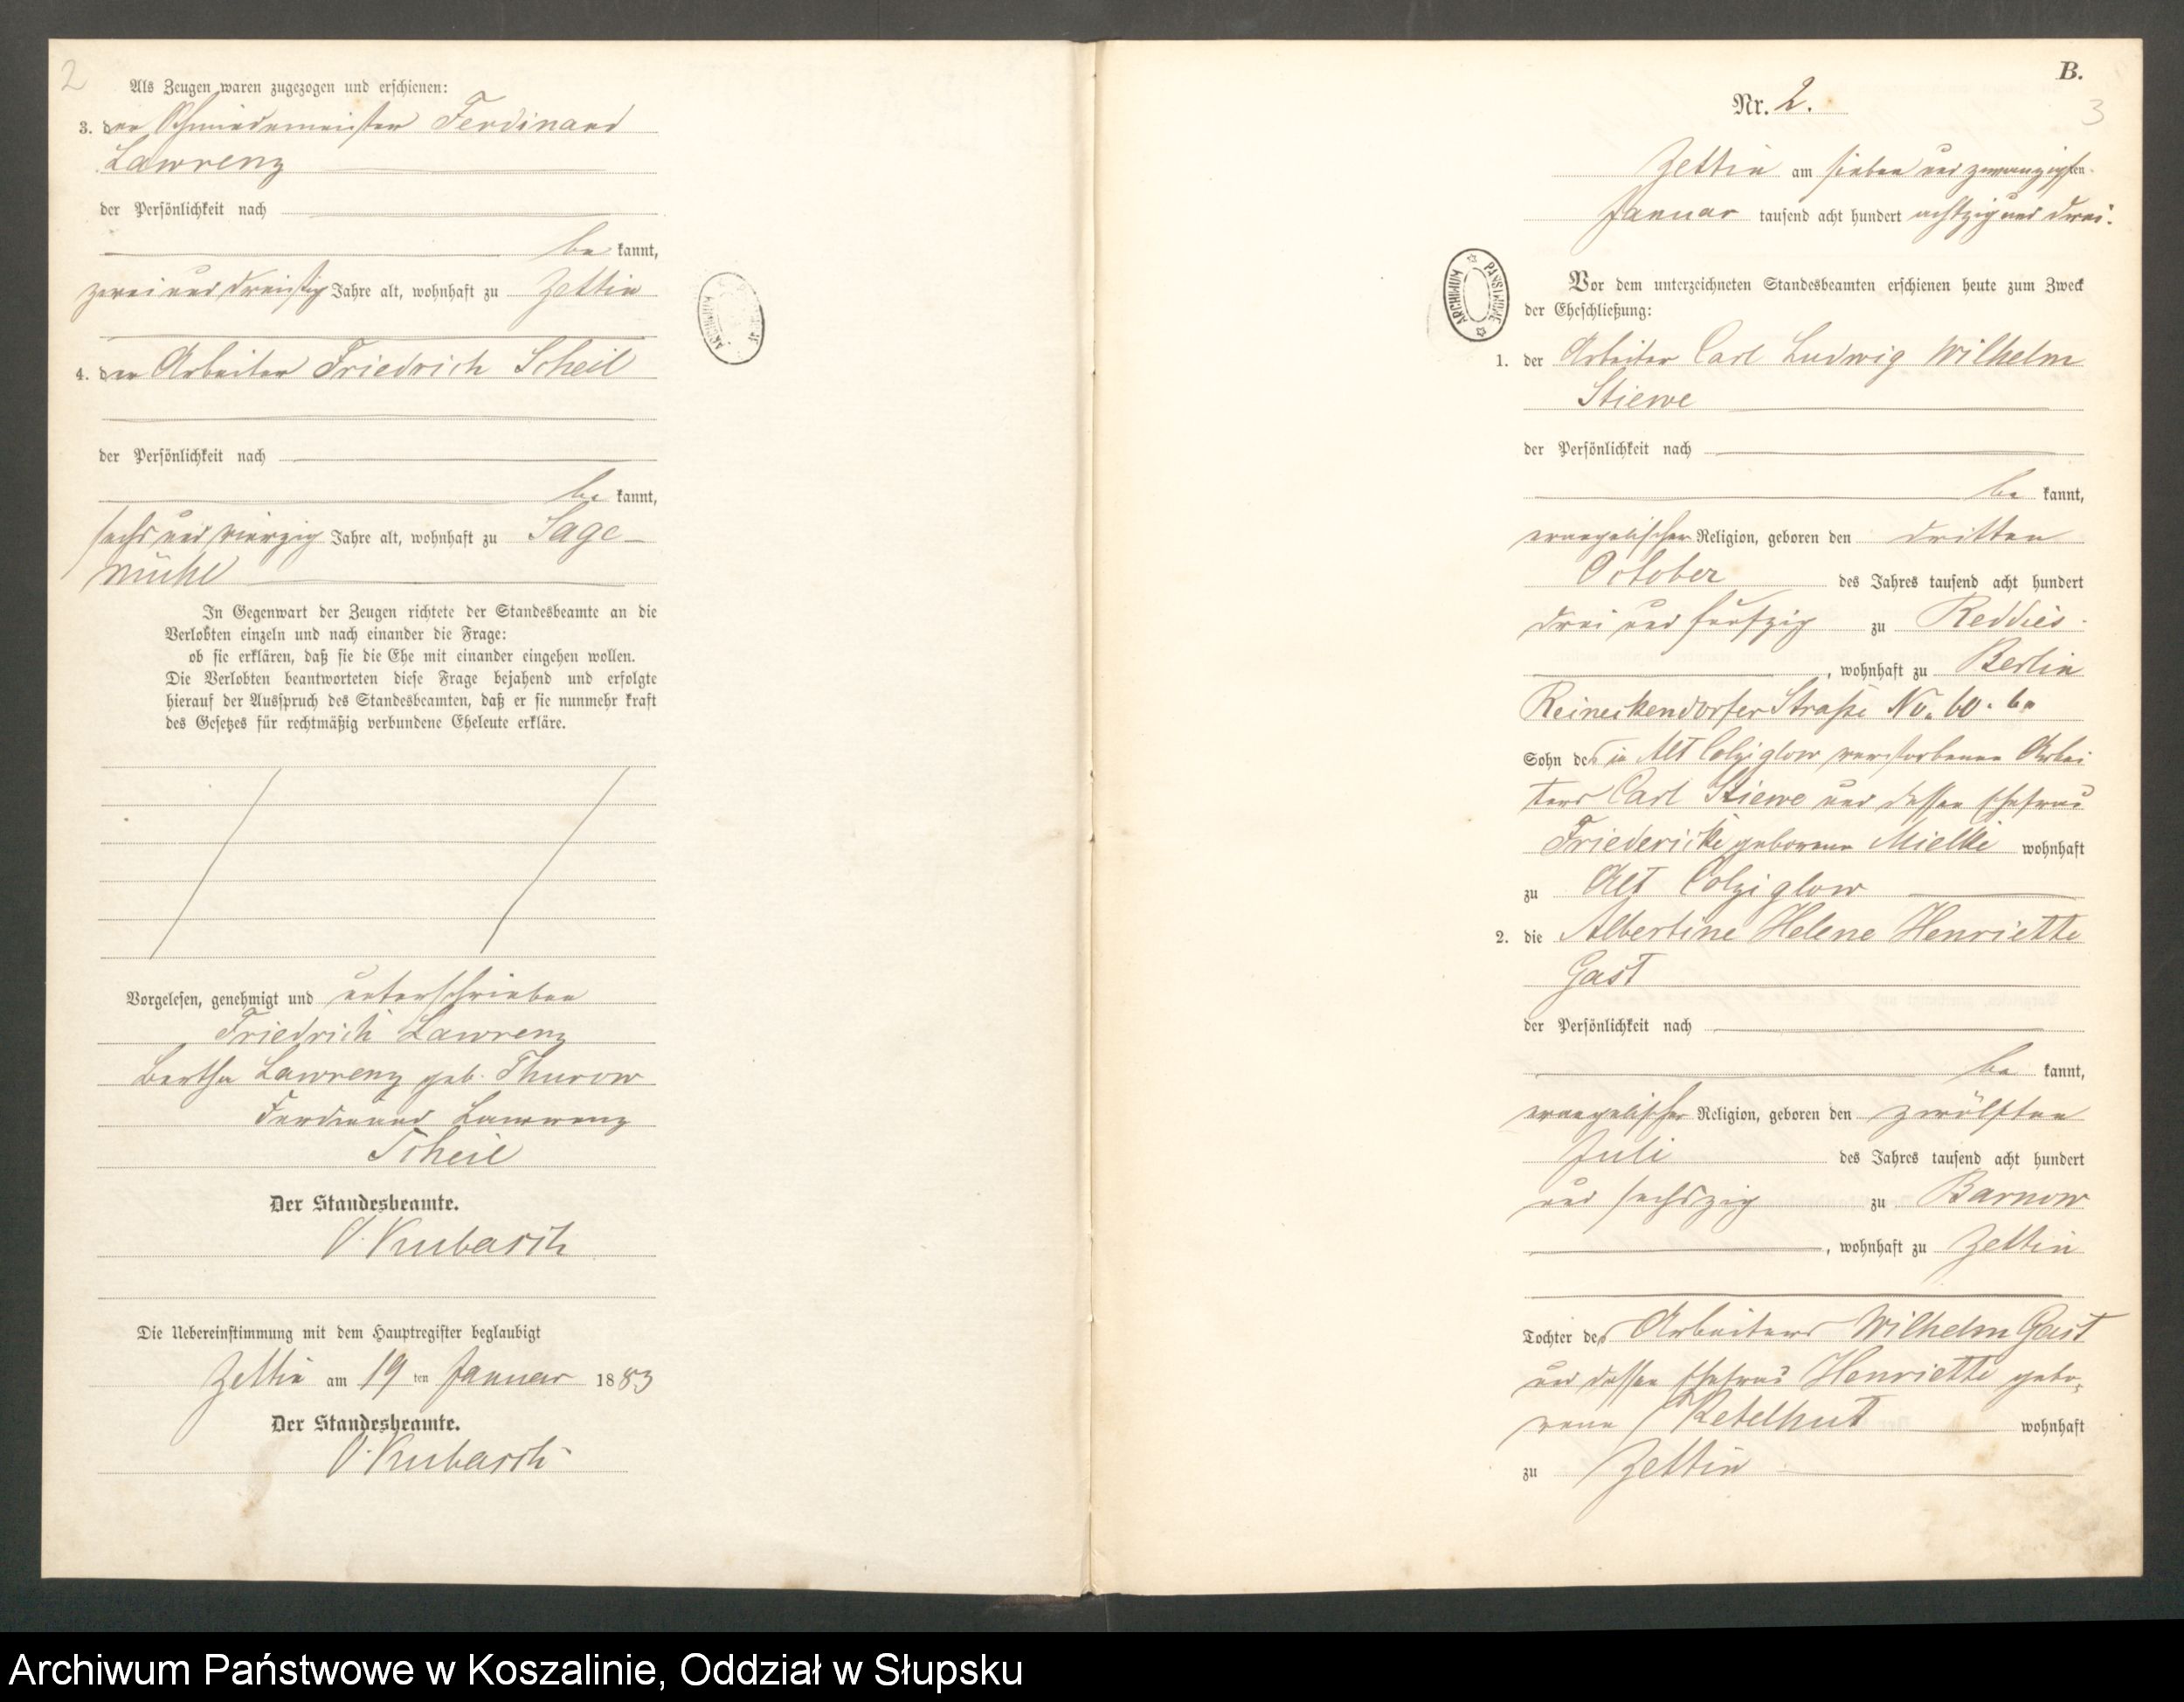 2
Als Zeugen waren zugezogen und erschienen:
3. der Schmiedemeister Ferdinand
Lawrenz
der Persönlichkeit nach
be kannt,
zwei und dreißig Jahre alt, wohnhaft zu Zettin
4. der Arbeiter Friedrich Scheil
der Persönlichkeit nach
be kannt,
sechs und vierzig Jahre alt, wohnhaft zu Sage-
mühl
In Gegenwart der Zeugen richtete der Standesbeamte an die
Verlobten einzeln und nach einander die Frage:
ob sie erklären, daß sie die Ehe mit einander eingehen wollen.
Die Verlobten beantworteten diese Frage bejahend und erfolgte
hierauf der Ausspruch des Standesbeamten, daß er sie nunmehr kraft
des Gesetzes für rechtmäßig verbundene Eheleute erkläre.
Vorgelesen, genehmigt und unterschrieben
Friedrich Lawrenz
Bertha Lawrenz geb. Thurow
Ferdinand Lawrenz
Scheil
Der Standesbeamte.
Kubasch
Die Uebereinstimmung mit dem Hauptregister beglaubigt
Zettin am 19 ten Januar 1883
Der Standesbeamte.
Kubasch
ARCHIWUM
B.
3
Nr. 2.
Zettin am sieben und zwanzigsten
Januar tausend acht hundert achtzig und drei.
ARCHIWUM PAŃSTWOWE
Vor dem unterzeichneten Standesbeamten erschienen heute zum Zweck
der Eheschließung:
1. der Arbeiter Carl Ludwig Wilhelm
Stiewe
der Persönlichkeit nach
be kannt,
evangelischer Religion, geboren den dritten
October des Jahres tausend acht hundert
drei und fünfzig zu Reddies
, wohnhaft zu Berlin
Reineckendorfer Straße No. 60. 6a
Sohn des in Alt Colziglow verstorbenen Arbei
ters Carl Stiewe und dessen Ehefrau
Friedericke geborene Mielke wohnhaft
zu Alt Colziglow
2. die Albertine Helene Henriette
Gast
der Persönlichkeit nach
be kannt,
evangelischer Religion, geboren den zwölften
Juli des Jahres tausend acht hundert
und sechszig zu Barnow
, wohnhaft zu Zettin
Tochter des Arbeiters Wilhelm Gast
und dessen Ehefrau Henriette gebo-
rene Retelhut wohnhaft
zu Zettin
Archiwum Państwowe w Koszalinie, Oddział w Słupsku